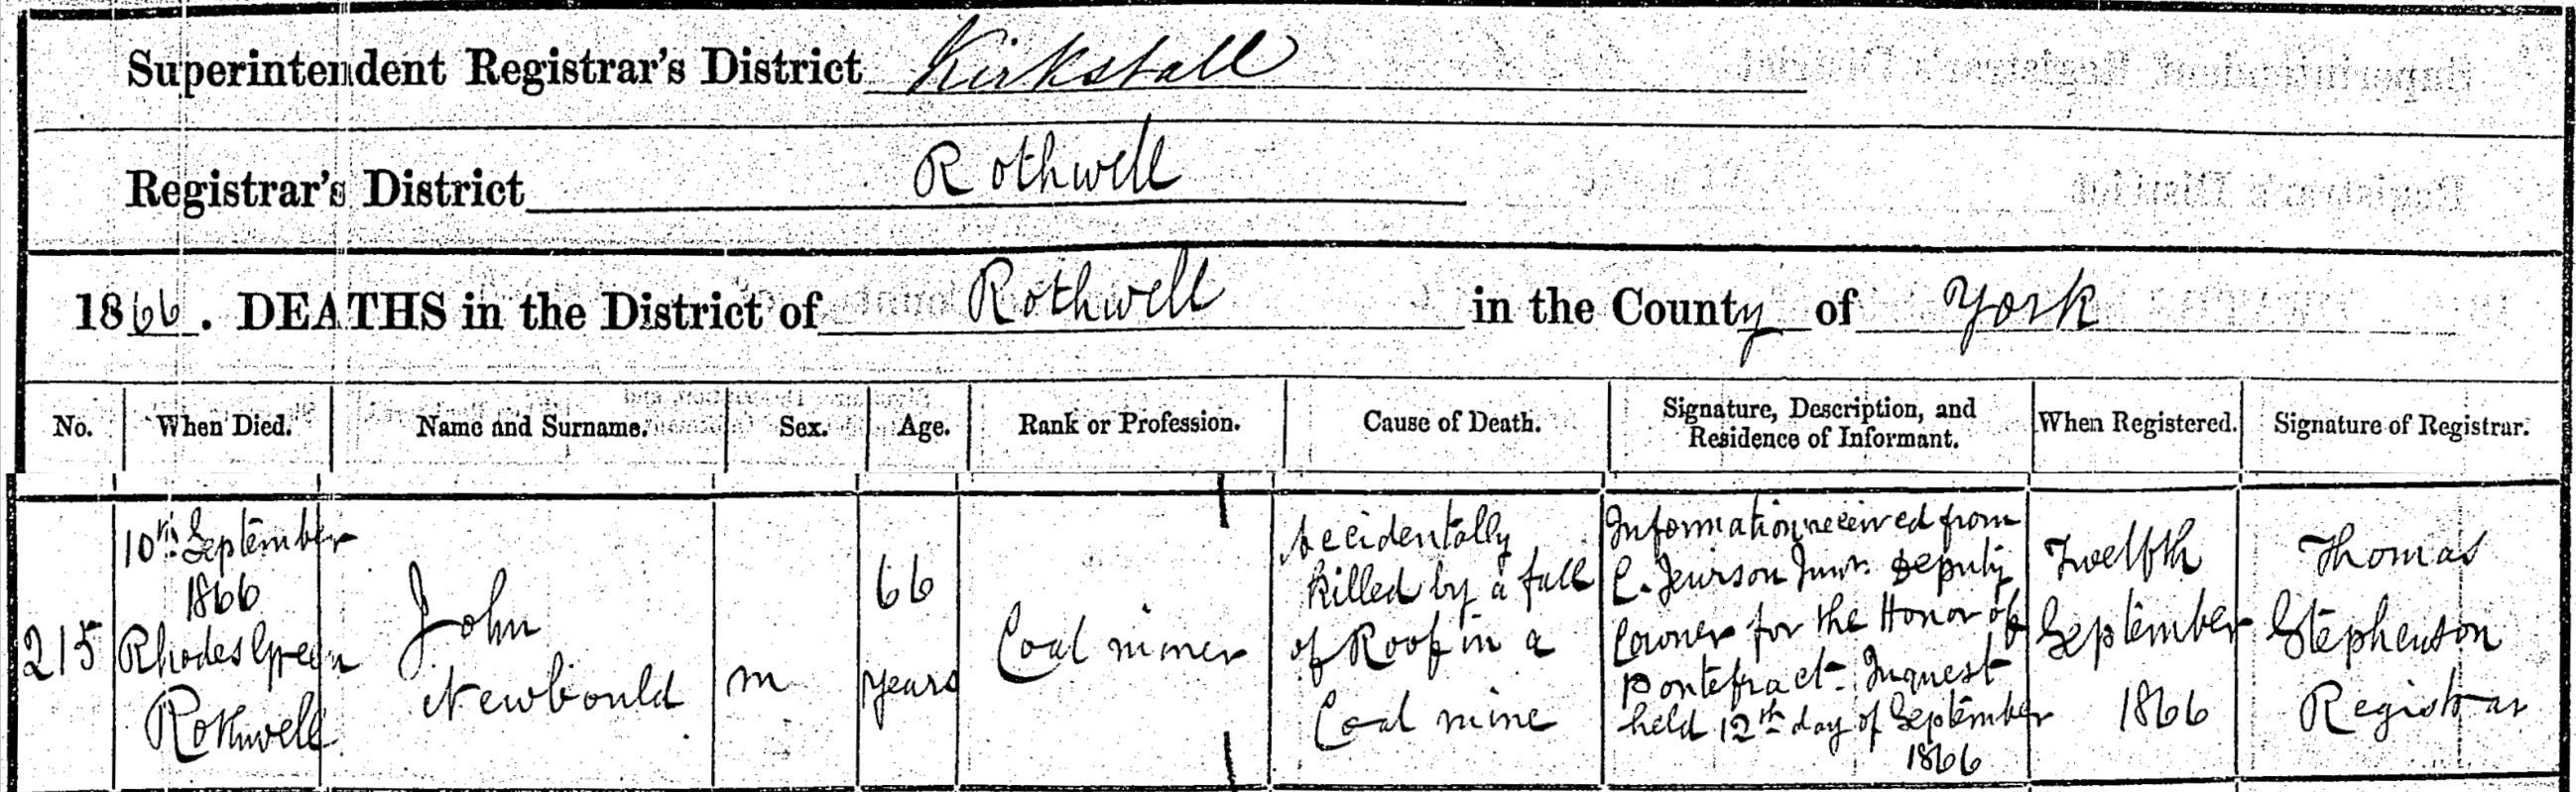 Superintendent Registrar's District Kirkstall
Registrar's District Rothwell
1866. DEATHS in the District of Rothwell in the County of York
No. When Died. Name and Surname. Sex. Age. Rank or Profession. Cause of Death. Signature, Description, and Residence of Informant. When Registered. Signature of Registrar.
215
10th September
1866
Rhodes Green
Rothwell
John
Newbould
m
66
years
Coal miner
Accidentally
killed by a fall
of Roof in a
Coal mine
Information received from
C. Jewison Junr. Deputy
Coroner for the Honor of
Pontefract. Inquest
held 12th day of September
1866
Twelfth
September
1866
Thomas
Stephenson
Registrar